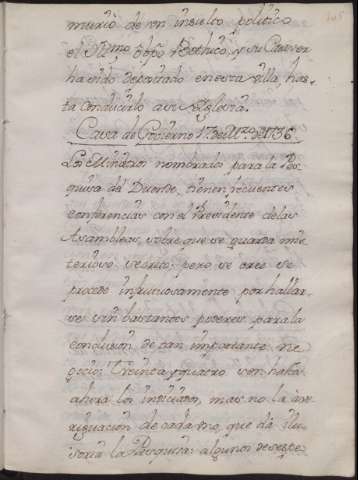 murió de un insulto político
el Illmo. Obpo. Bethuco, y su Cadaver
ha sido depositado en esta villa, has-
ta conducirlo a su Iglesia.
Casa de Govierno 1º de Mzo. de 1736
Los Ministros nombrados para la Pes-
quisa del Duende, tienen frecuentes
conferencias con el Presidente de las
Asambleas, sobre que se guarda mis-
terioso secreto; pero se cree se
procede infructuosamente por hallar-
se sin bastantes poderes para la
conclusion de tan importante ne-
gocio; treinta y quatro son hasta
ahora los iniciados, mas no la ave-
riguacion de cada uno, que dá ilu-
soria la Pesquisa: algunos desespe-